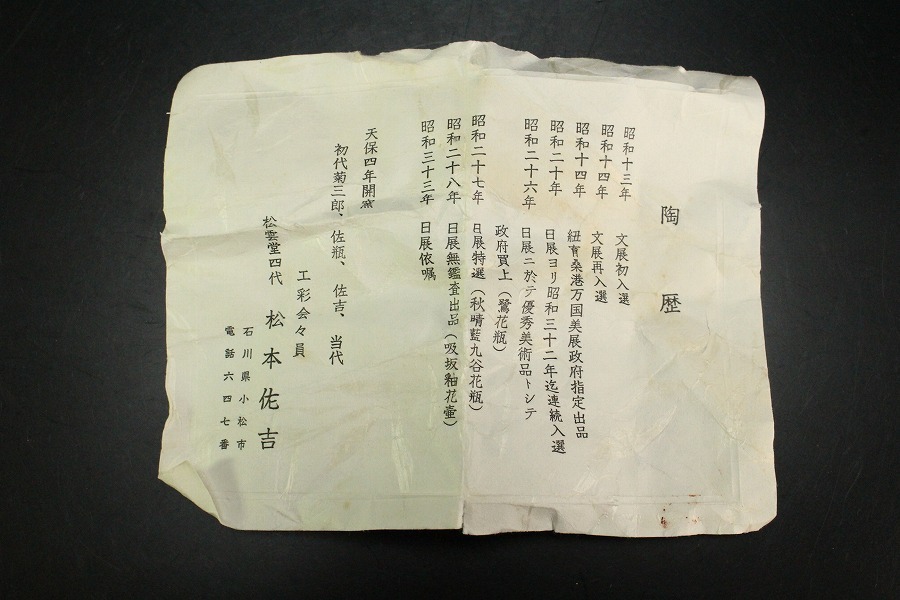 陶歴
昭和十三年 文展初入選
昭和十四年 文展再入選
昭和十四年 紐育桑港万国美展政府指定出品
昭和二十年 日展ヨリ昭和三十二年迄連続入選
昭和二十六年 日展ニ於テ優秀美術品トシテ
政府買上(鷺花瓶)
昭和二十七年 日展特選(秋晴藍九谷花瓶)
昭和二十八年 日展無鑑査出品(吸坂釉花壷)
昭和三十三年 日展依嘱
天保四年開窯
初代菊三郎、佐瓶、佐吉、当代
工彩会々員
松雲堂四代 松本佐吉
石川県小松市
電話六四七番